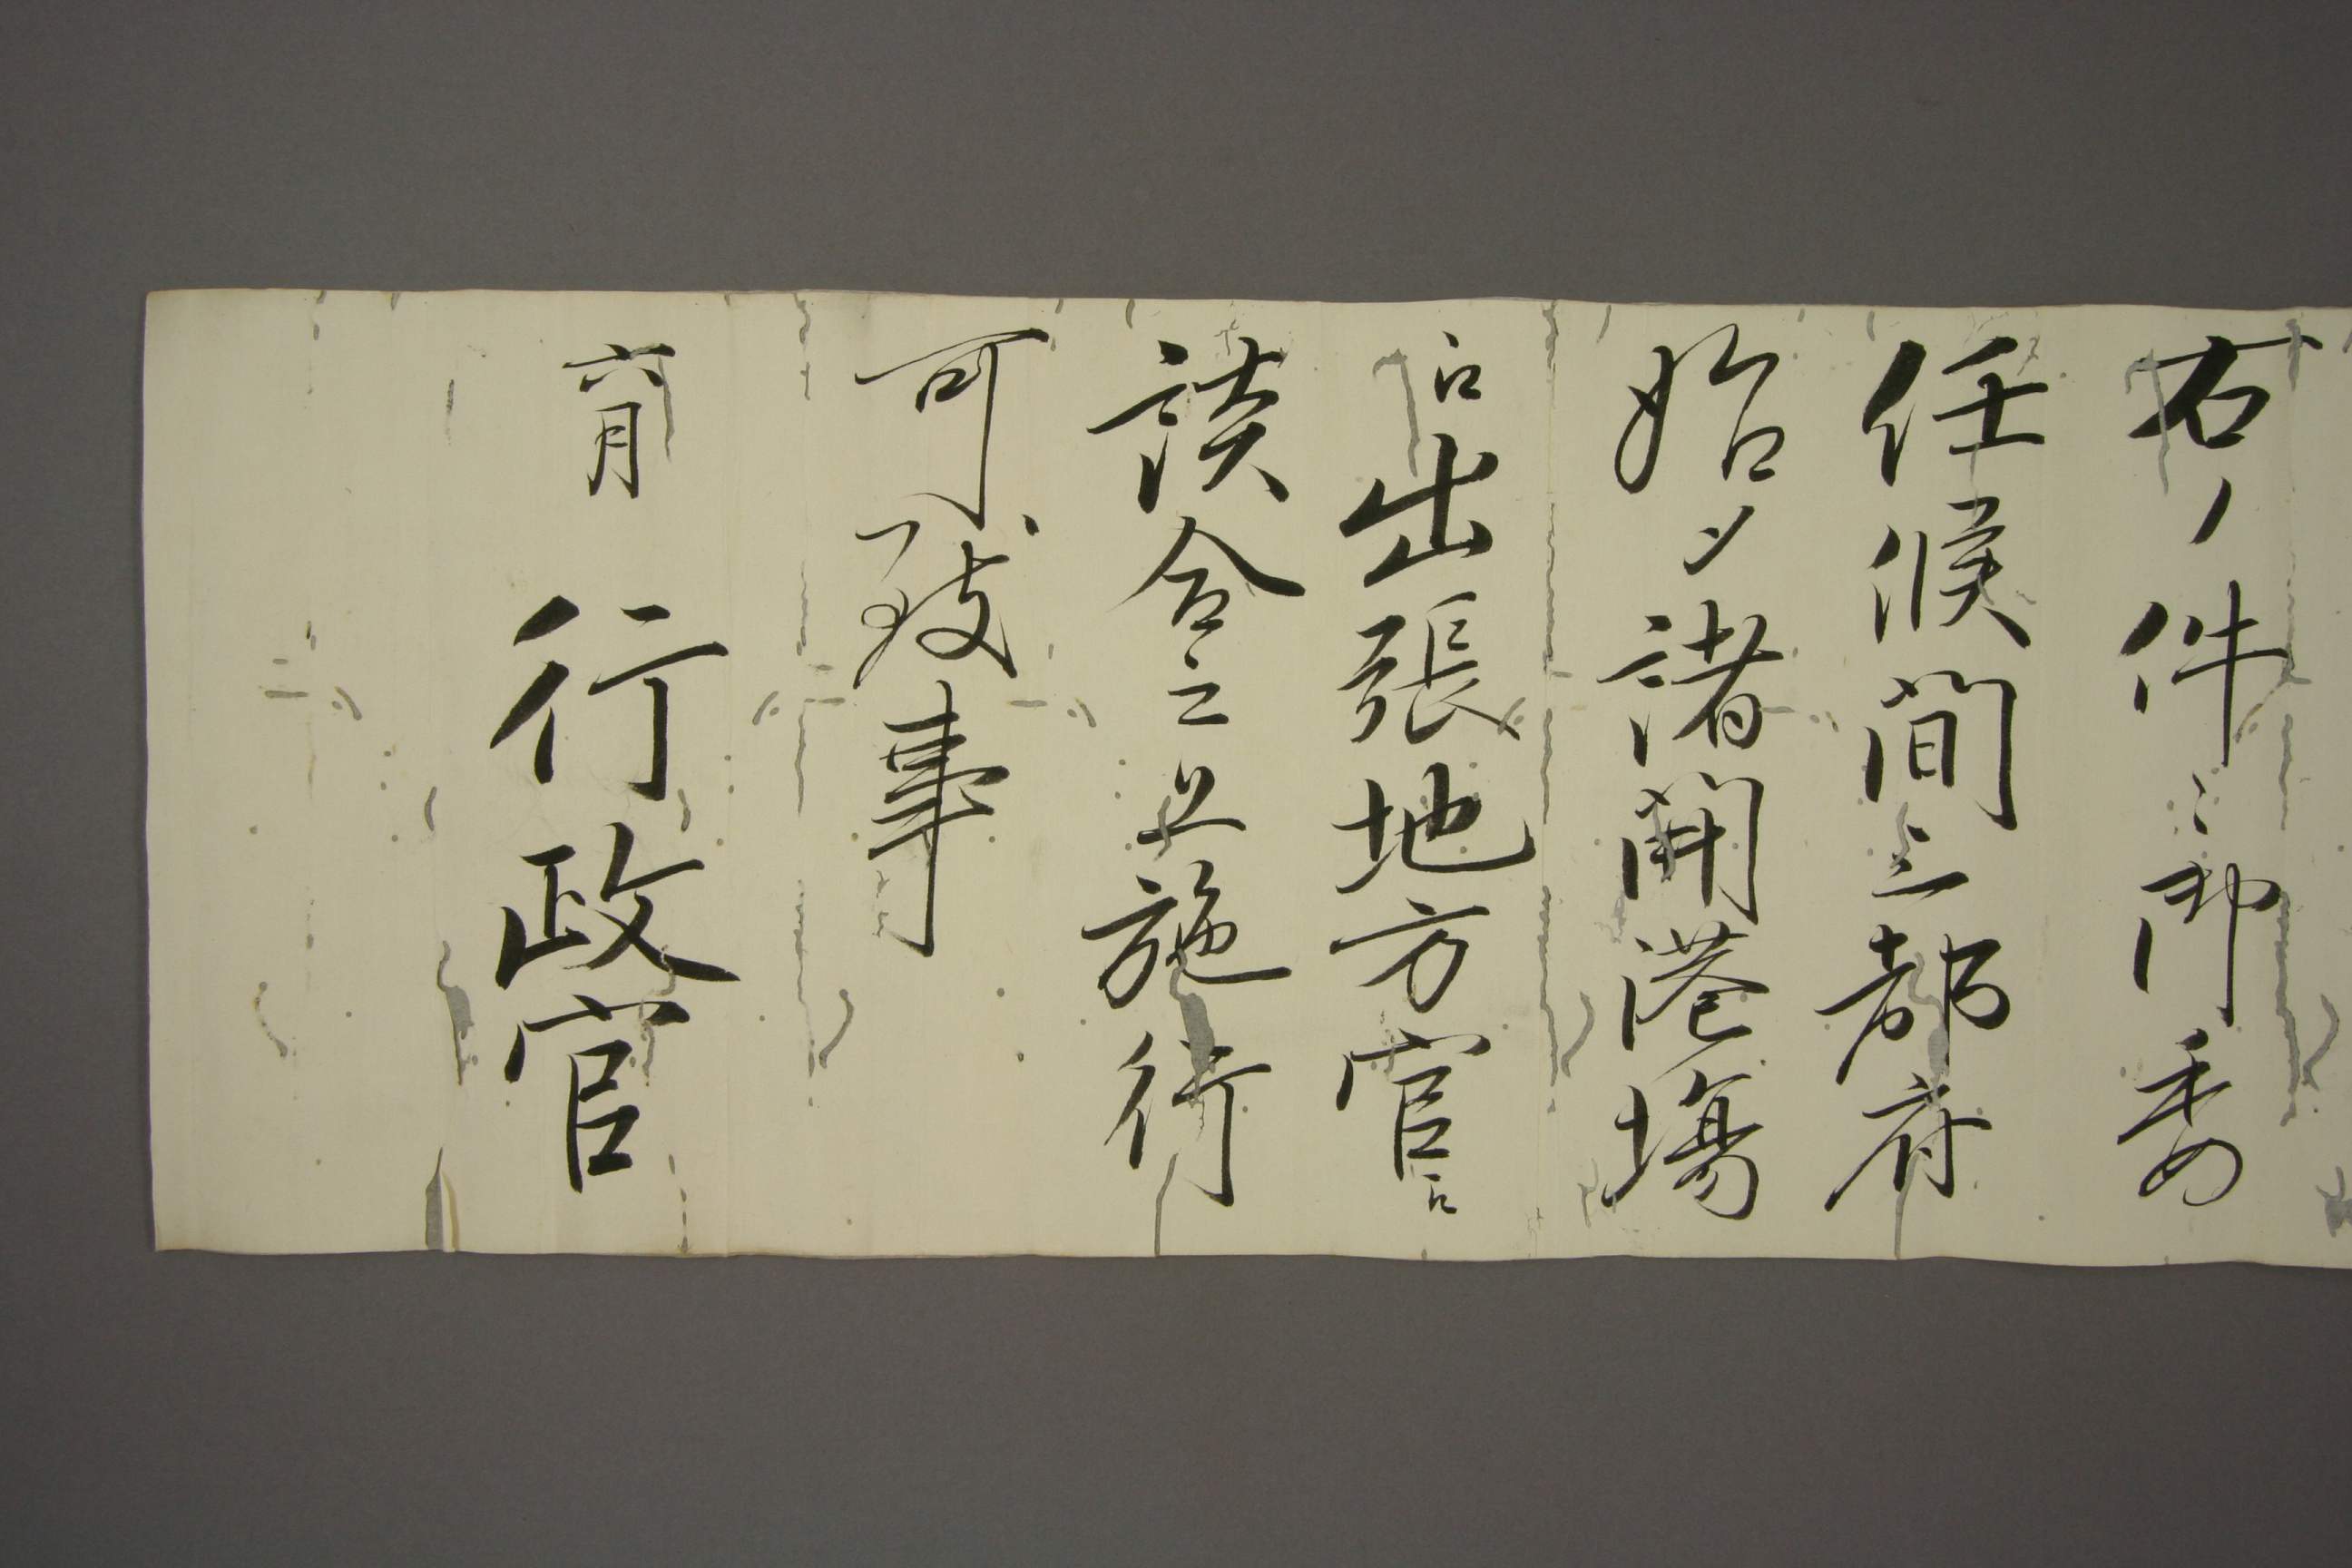 右ノ件々御委
任候間三都府
始メ諸開港場
ニ出張地方官ニ
談合之上施行
可致事
六月
行政官